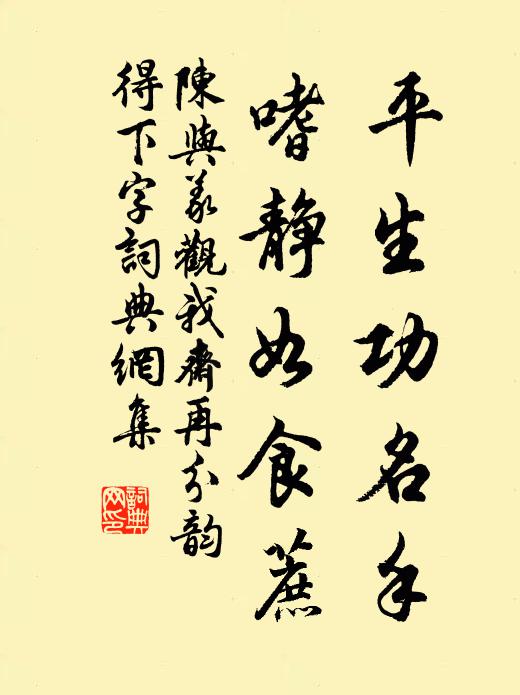 平生功名手
嗜静如食蔗
陳與義觀我齋再分韵
得下字詞典網集
詞典
网印